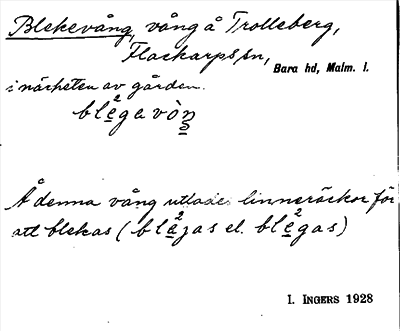 Blekevång, vång å Trolleberg,
Flackarps sn,
Bara hd, Malm. l.
i närheten av gården.
blę²ga vòŋ
Å denna vång utlades linneräckor för
att blekas (blę²jas el. blę²gas)
I. INGERS 1928